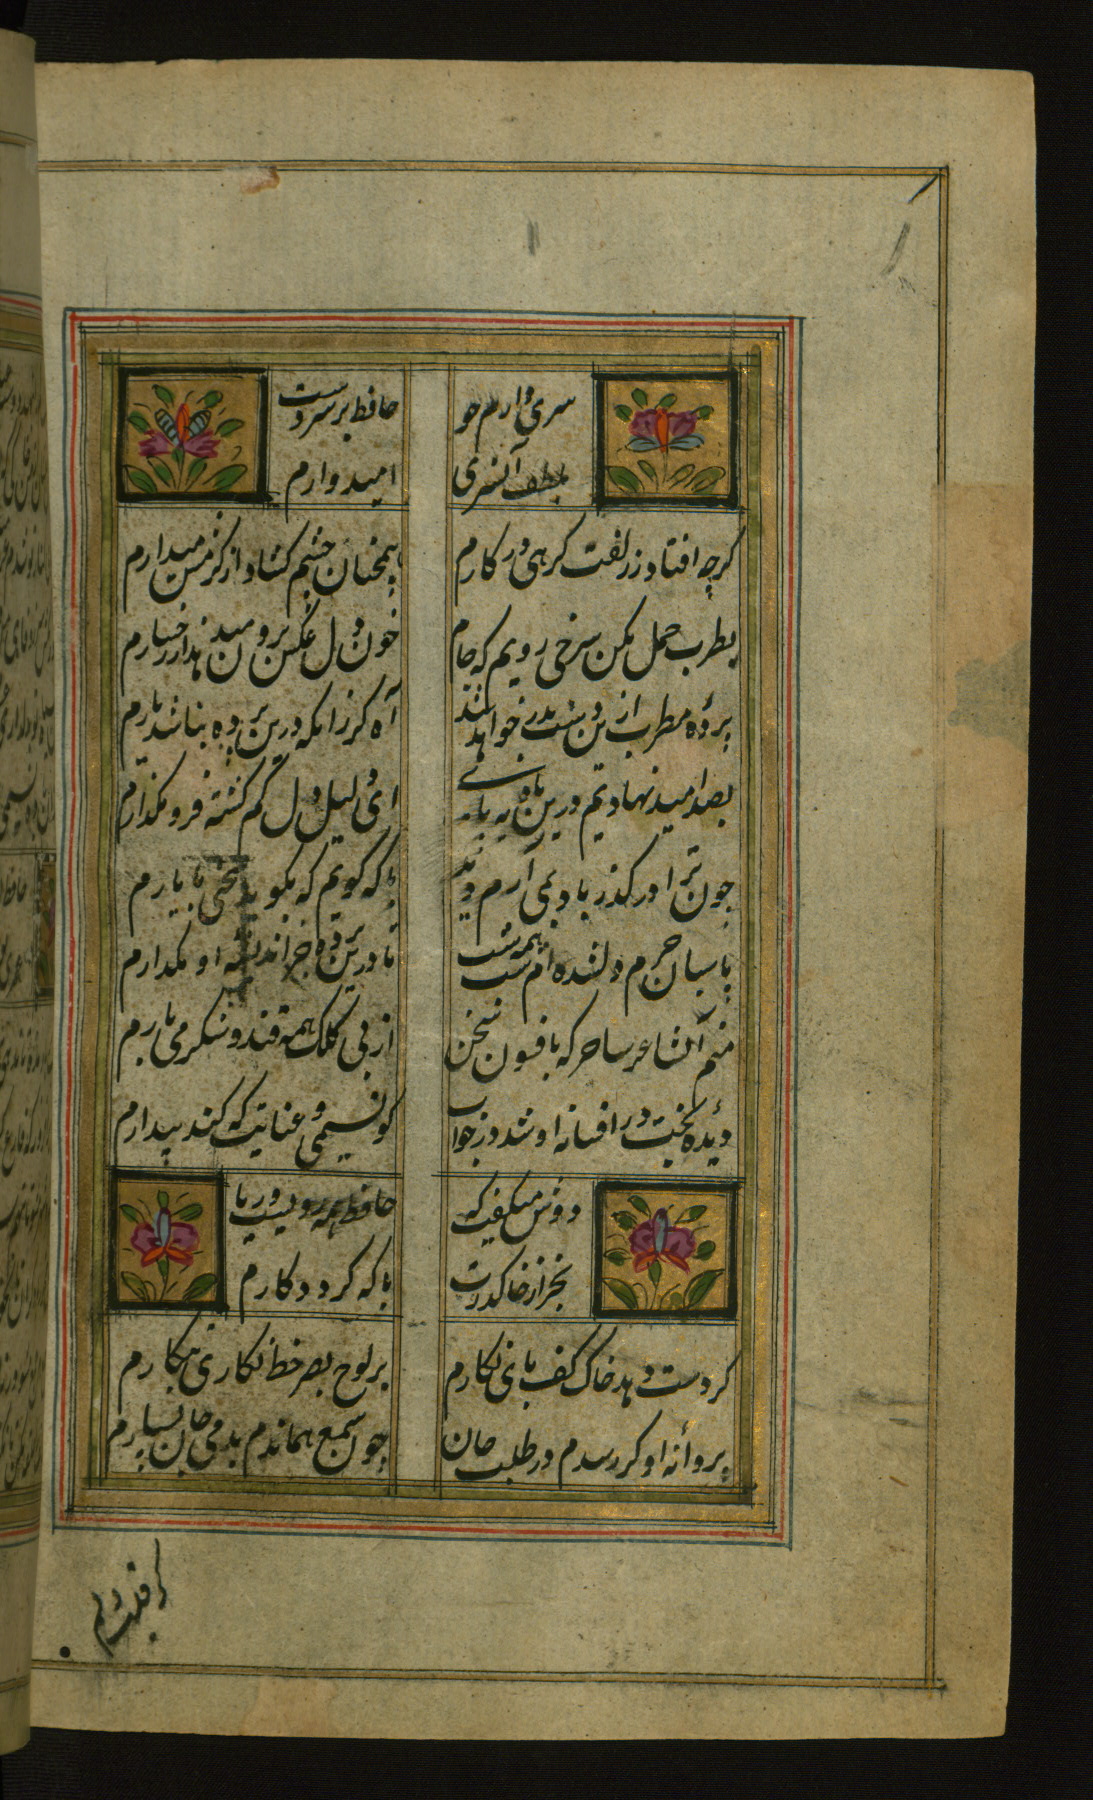 سری دارم چو حافظ بر سر دست
بلطف آنسری امیدوارم
گرچه افتاد ز زلفت گرهی در کارم
همچنان چشم گشاد از کرمش میدارم
بطرب حمل مکن سرخی رویم که چو جام
خون دل عکس برون میدهد از رخسارم
پرده مطرب از دست بدر خواهد شد
آه گر زانکه درین پرده نباشد بارم
بصد امید نهادیم درین بادیه پای
ای دلیل دل گم گشته فرو مگذارم
چون ترا در گذر باد نمی آرم دید
با که گویم که بگوید سخنی با یارم
پاسبان حرم دل شده ام شب همه شب
تا درین پرده جز اندیشه او نگذارم
منم آن شاعر ساحر که بافسون سخن
از نی کلک همه قند و شکر می بارم
دیده بخت در افسانه او شد در خواب
کو نسیمی ز عنایت که کند بیدارم
دوش میگفت که حافظ همه رویست و ریا
بجز از خاک درت با که گرود کارم
گر دست دهد خاک کف پای نگارم
بر لوح بصر خط نگاری بنگارم
پروانه او گر رسدم در طلب جان
چون شمع هماندم بدمی جان بسپارم
گر قلب دلم